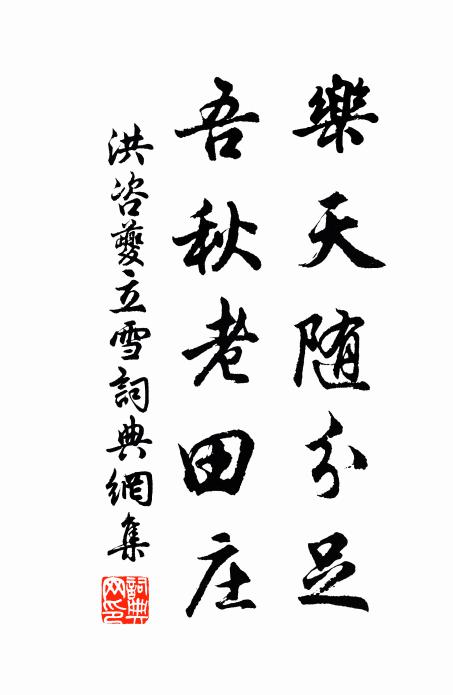 樂天随分足
吾秋老田庄
洪咨夔立雪詞典網集
詞典網印